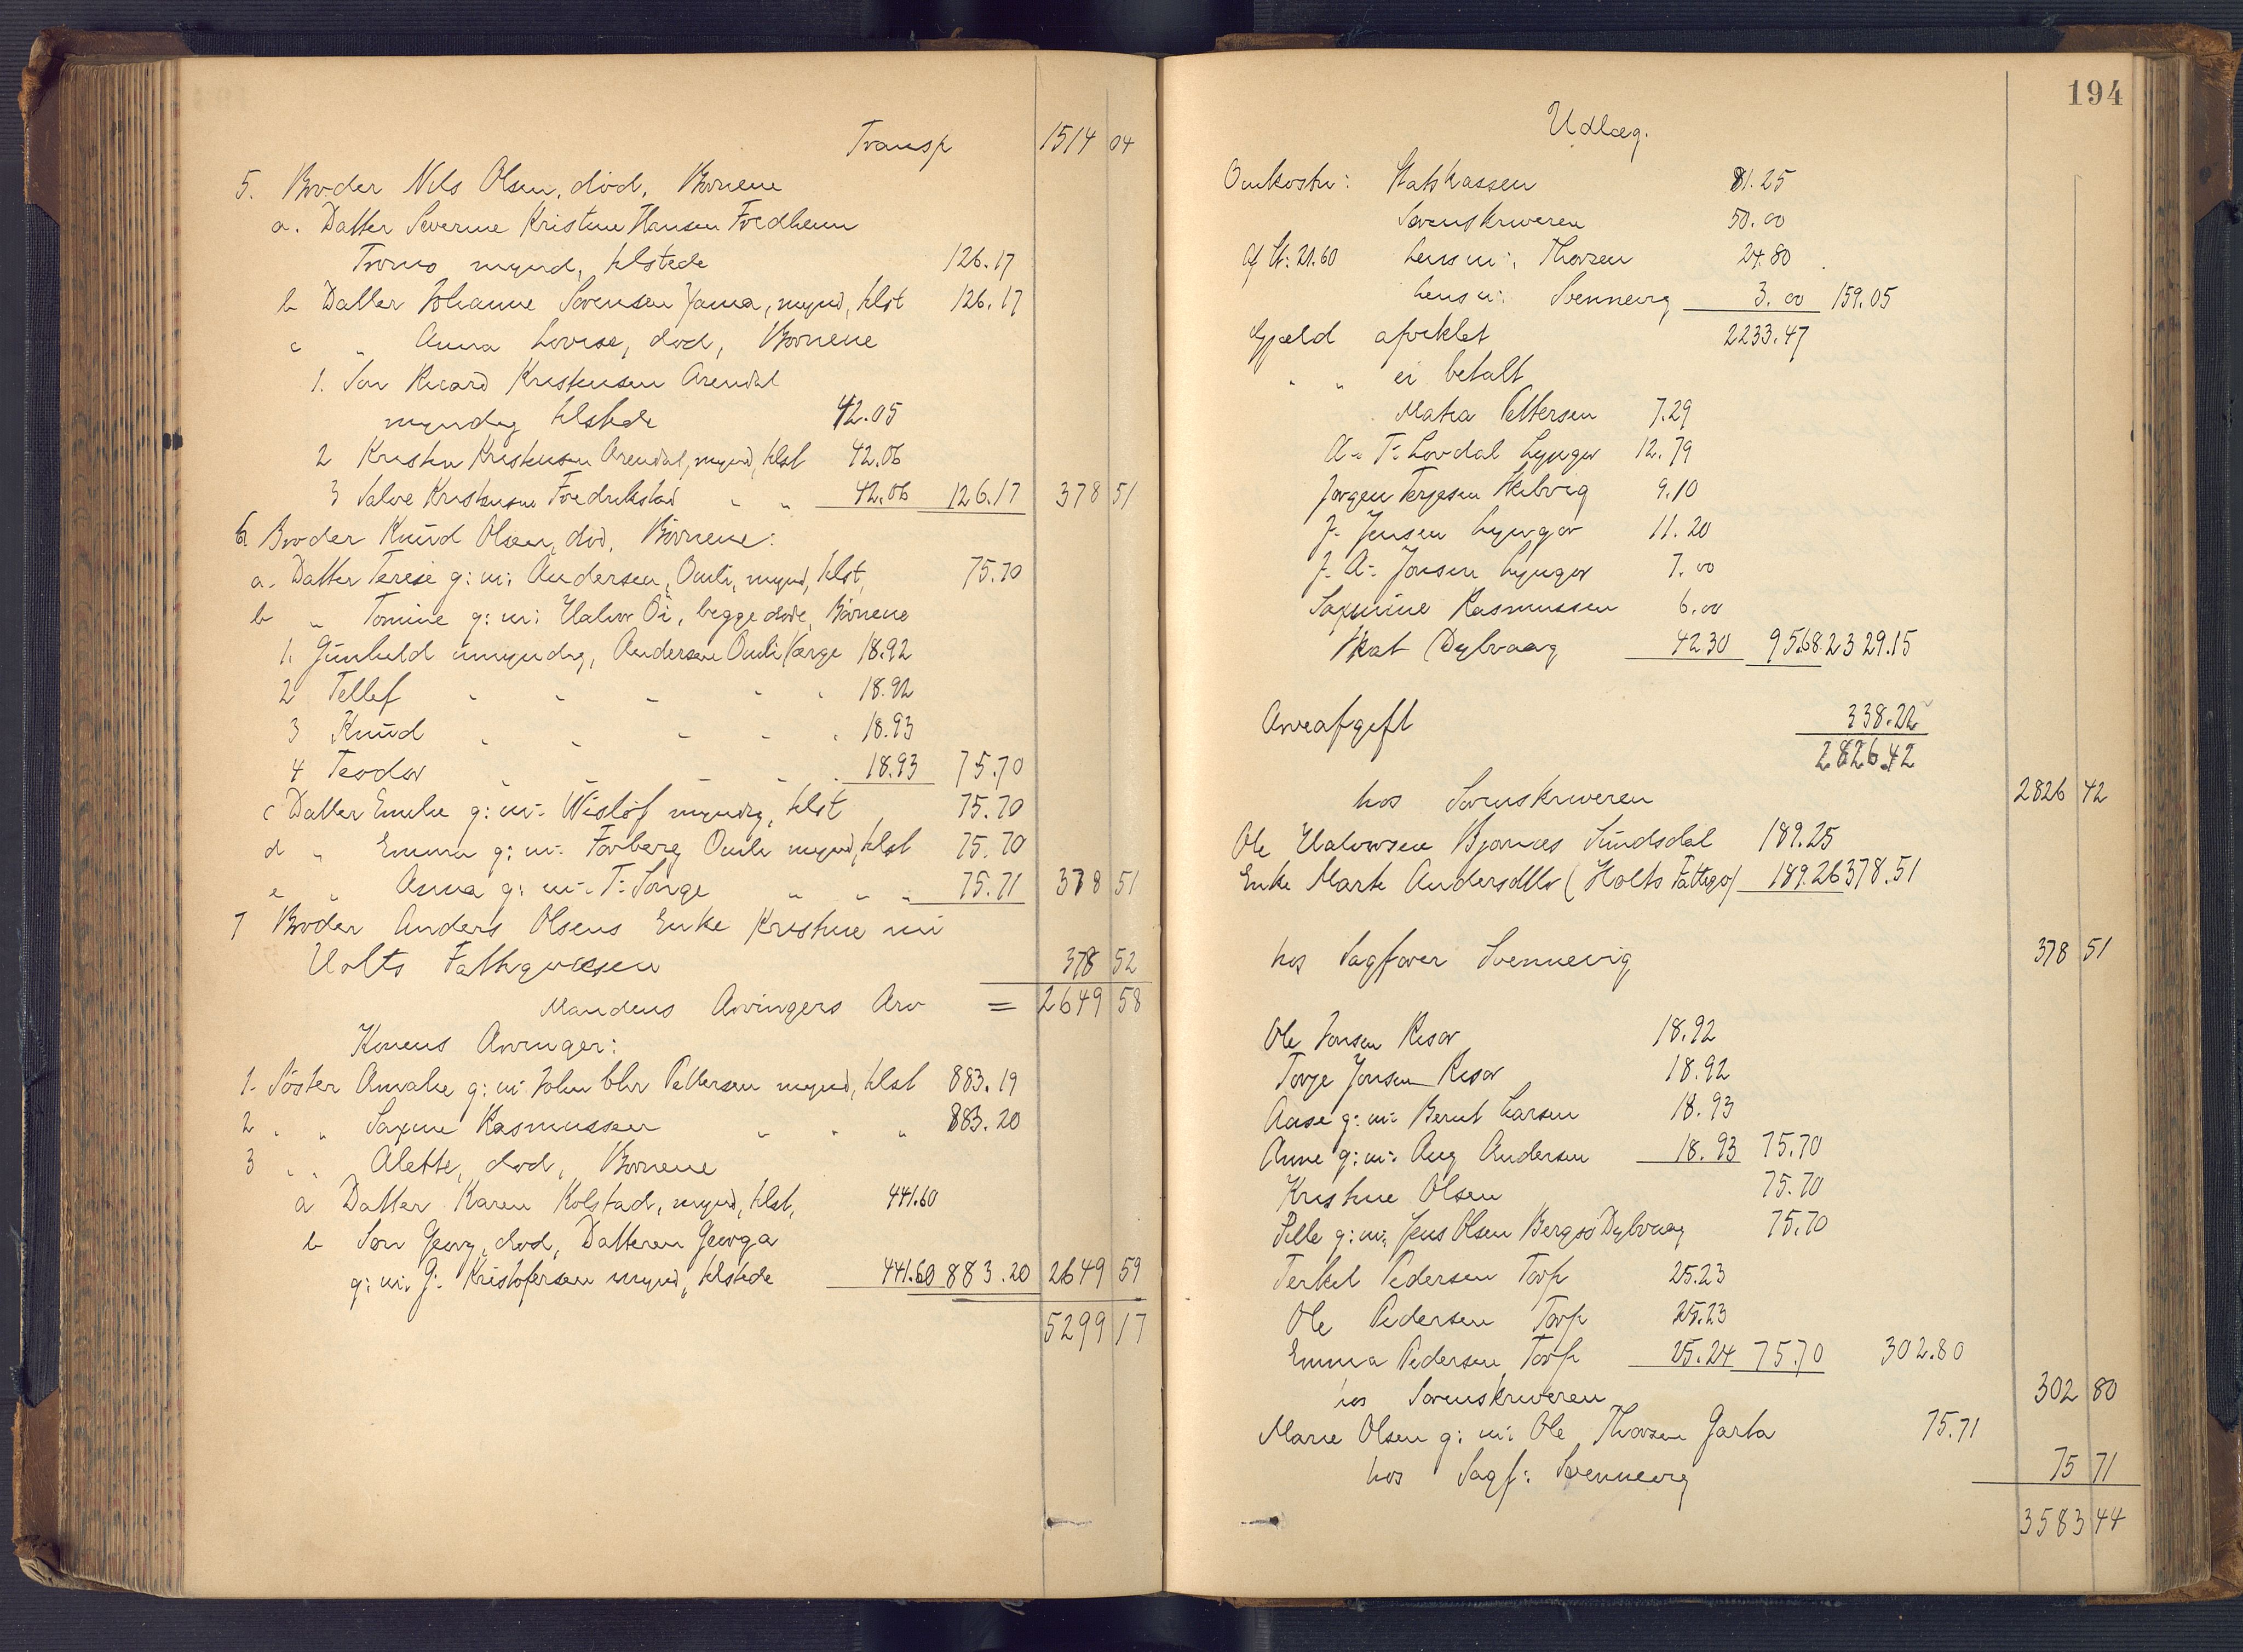 Transp 1514 04
5. Broder Nils Olsen, död, Börnene
a. Datter Severine Kristine Hansen Fredheim
Tromö mynd, tilstede 126.17
b Datter Johanne Sørensen, mynd, tilst 126.17
c " Anna Lovise, död, Börnene
1. Sön Ricard Kristensen Arendal
myndig tilstede 42.05
2 Kristen Kristensen Arendal, mynd, tilst 42.06
3 Salve Kristensen Fredrikstad " " 42.06 126.17 378 51
6. Broder Knud Olsen, död, Börnene:
a. Datter Terese g: m: Andersen, Omli, mynd, tilst, 75.70
b " Tomine g: m: Halvor Öi, begge döde, Börnene
1. Gunhild umyndig, Andersen Omli Værge 18.92
2 Tellef " " " " " 18.92
3 Knud " " " " " 18.93
4 Teodor " " " " " 18.93 75.70
c Datter Emilie g: m: Wislöf myndig, tilst 75.70
d " Emma g: m: Forberg Omli mynd, tilst 75.70
e " Anna g: m: T: Songe " " " 75.71 378 51
7 Broder Anders Olsens Enke Kristine i
Holts Fattigvæsen 378 52
Mandens Arvingers Arv = 2649 58
Konens Arvinger:
1. Söster Amalie g: m: John Chr Pettersen mynd, tilst 883.19
2 " " Saxine Rasmussen " " " 883.20
3 " " Alette, död, Börnene
a Datter Karen Kolstad, mynd, tilst, 441.60
b Sön Georg, död, Datteren Georga
g: m: G: Kristofersen mynd, tilstede 441.60 883.20 2649 59
5299 17
194
Udlæg.
Omkostn: Statskassen 81.25
Sorenskriveren 50.00
Af St: 21.60 Lensm: Thorsen 24.80
Lensm: Svennevig 3.00 159.05
Gjæld afviklet 2233.47
" " ei betalt
Matea Pettersen 7.29
A. T: Lovdal Lyngør 12.79
Jørgen Terjesen Skibvig 9.10
J. Jensen Lyngør 11.20
J. A. Jonsen Lyngør 7.00
Saxmine Rasmussen 6.00
Skat Dybvaag 42.30 95.68 2329.15
Arveafgift 338.22
2826.42
hos Sorenskriveren 2826 42
Ole Halvorsen Bjørnæs Sundsdal 189.25
Enke Marte Andersdtter (Holts Fattigv) 189.26 378.51
hos Sagfører Svennevig 378 51
Ole Jonsen Risør 18.92
Terje Jonsen Risør 18.92
Aase g: m: Bernt Larsen 18.93
Anne g: m: Aug Andersen 18.93 75.70
Kristine Olsen 75.70
Pille g: m: Jens Olsen Bergsø Dybvaag 75.70
Terkel Pedersen Torp 25.23
Ole Pedersen Torp 25.23
Emma Pedersen Torp 25.24 75.70 302.80
hos Sorenskriveren 302 80
Marie Olsen g: m: Ole Thorsen Garta 75.71
hos Sagf: Svennevig 75 71
3583 44